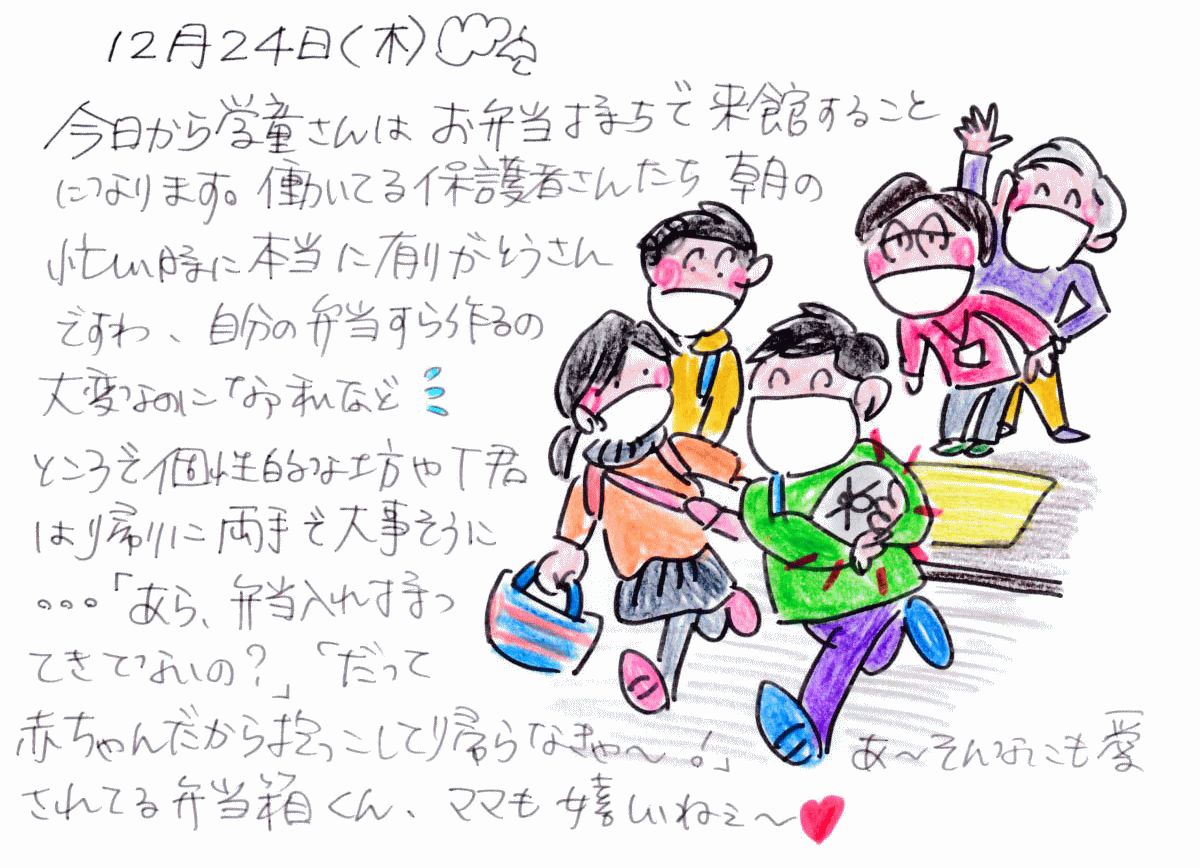 12月24日(木)
今日から学童さんは お弁当持ちで来館すること
になります。働いてる保護者さんたち 朝の
忙しい時に本当に有りがとうさん
ですわ、自分の弁当すら作るの
大変なのになァ私など
ところで個性的な坊やT君
は帰りに両手で大事そうに
...「あら、弁当入れ持っ
てきてないの?」「だって
赤ちゃんだから抱っこして帰らなきゃ〜!」 あ〜そんなにも愛
されてる弁当箱くん、ママも嬉しいねェ〜♥